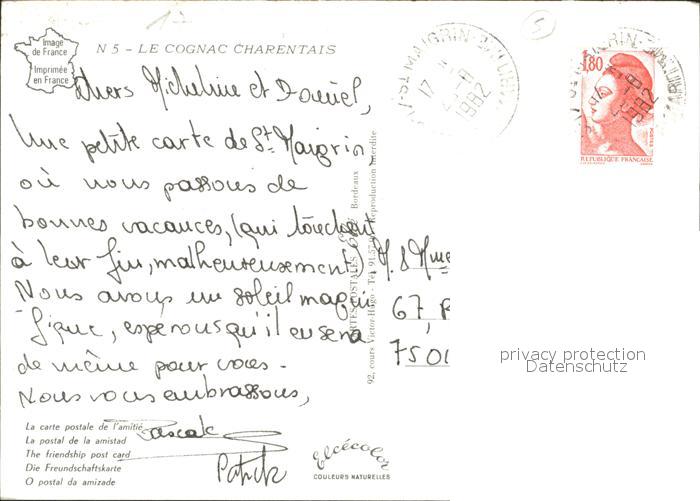 Image
de France
Imprimée
en France
N 5 - LE COGNAC CHARENTAIS
Chers Micheline et Daniel,
Une petite carte de St. Maigrin
où nous passons de
bonnes vacances, (qui touchent
à leur fin, malheureusement)
Nous avons un soleil magni
fique, espérons qu'il en sera
de même pour vous.
Nous vous embrassons,
Pascale
Patrick
M. & Mme
67,
7501
ST MAIGRIN
17
1982
1,80
REPUBLIQUE FRANÇAISE
POSTES
CARTES POSTALES
Bordeaux
92, cours Victor-Hugo - Tél. 91.57
Reproduction interdite
privacy protection
Datenschutz
La carte postale de l'amitié
La postal de la amistad
The friendship post card
Die Freundschaftskarte
O postal da amizade
Elcécolor
COULEURS NATURELLES